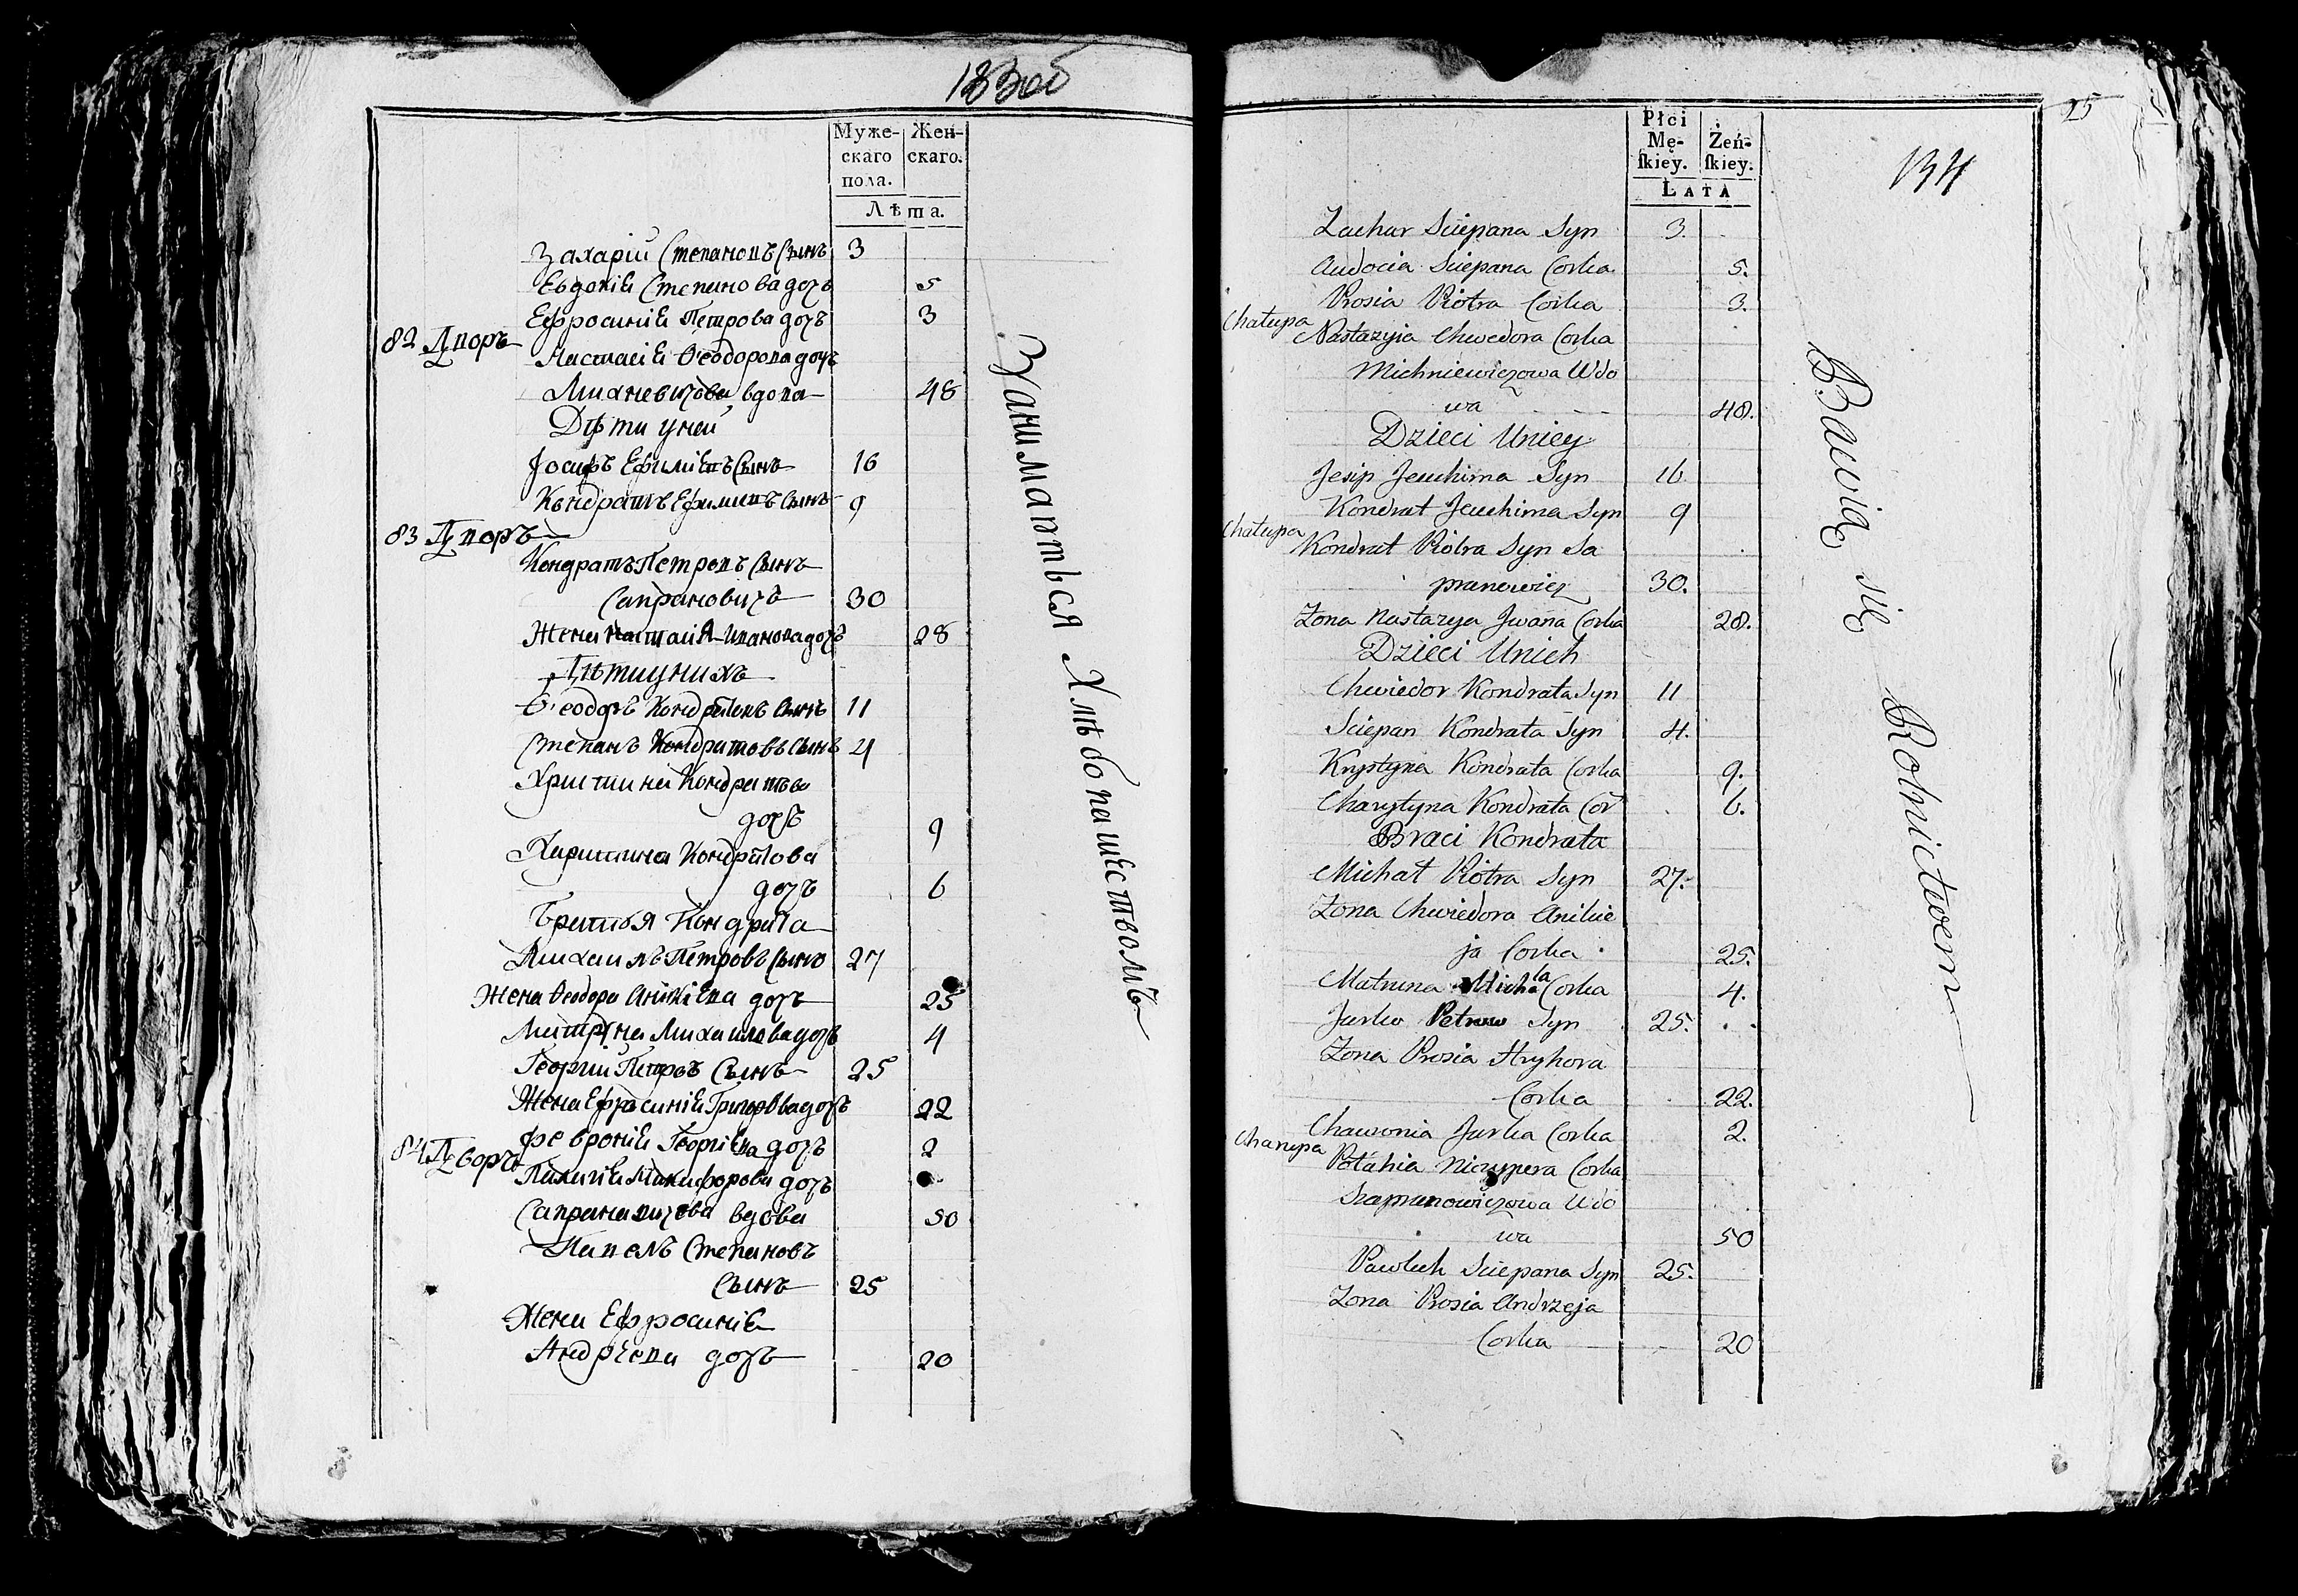 133об
Муже-
скаго
пола.
Жен-
скаго.
Лѣта.
Захарій Степановъ Сынъ 3
Евдокія Степанова дочь 5
Ефросинія Петрова дочь 3
82 Дворъ
Настасія Ѳеодорова дочь
Михневичова вдова 48
Дѣти у ней
Іосифъ Ефимовъ Сынъ 16
Кондратъ Ефимовъ Сынъ 9
83 Дворъ
Кондратъ Петровъ Сынъ
Сапрановичъ 30
Жена Настасія Иванова дочь 28
Дѣти у нихъ
Ѳеодоръ Кондратовъ Сынъ 11
Степанъ Кондратовъ Сынъ 4
Христина Кондратова
дочь 9
Харитина Кондратова
дочь 6
Братья Кондрата
Михаилъ Петровъ Сынъ 27
Жена Ѳеодора Аникіева дочь 25
Матрона Михаилова дочь 4
Георгій Петровъ Сынъ 25
Жена Ефросинія Григорова дочь 22
Февронія Георгіева дочь 2
84 Дворъ
Палагія Никифорова дочь
Сапрановичова вдова 50
Павелъ Степановъ
Сынъ 25
Жена Ефросинія
Андреева дочь 20
Заниматься Хлѣбопашествомъ
25
134
Płci
Mę-
ſkiey.
Żeń-
ſkiey.
LATA
Zachar Sciepana Syn 3.
Audocia Sciepana Corka 5.
Prosia Piotra Corka 3.
Chałupa
Nastazyia Chwedora Corka
Michniewiczowa Wdo
wa 48.
Dzieci Uniey
Jesip Jeuchima Syn 16
Kondrat Jeuchima Syn 9
Chałupa
Kondrat Piotra Syn Sa
pranowicz 30.
Zona Nastazya Jwana Corka 28.
Dzieci Unich
Chwiedor Kondrata Syn 11
Sciepan Kondrata Syn 4.
Krystyna Kondrata Corka 9.
Charytyna Kondrata Cor 6.
Braci Kondrata
Michał Piotra Syn 27.
Zona Chwiedora Anikie
ja Corka 25.
Matruna Michała Corka 4.
Jurko Petrow Syn 25.
Zona Prosia Hryhora
Corka 22.
Chawronia Jurka Corka 2.
Chałupa
Połahia Niczypera Corka
Szapranowiczowa Wdo
wa 50
Pawluk Sciepana Syn 25.
Zona Prosia Andrzeja
Corka 20
Bawią się Rolnictwem